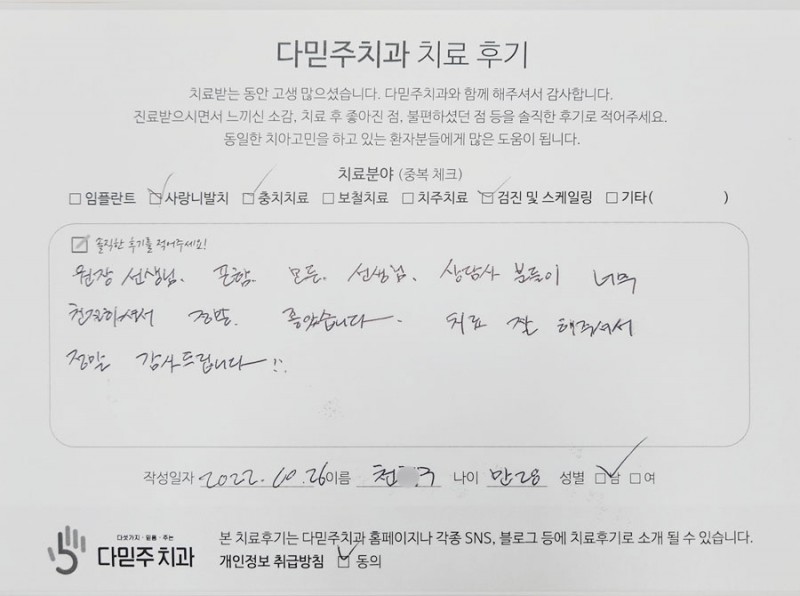 다믿주치과 치료 후기
치료받는 동안 고생 많으셨습니다. 다믿주치과와 함께 해주셔서 감사합니다.
진료받으시면서 느끼신 소감, 치료 후 좋아진 점, 불편하셨던 점 등을 솔직한 후기로 적어주세요.
동일한 치아고민을 하고 있는 환자분들에게 많은 도움이 됩니다.
치료분야 (중복 체크)
□ 임플란트 ☑ 사랑니발치 ☑ 충치치료 □ 보철치료 □ 치주치료 ☑ 검진 및 스케일링 □ 기타( )
솔직한 후기를 적어주세요!
원장 선생님. 포함. 모든. 선생님. 상담사 분들이 너무
친절하셔서 정말. 좋았습니다. 치료 잘 해주셔서
정말 감사드립니다!!
작성일자 2022. 10. 26 이름 천 주 나이 만28 성별 ☑ 남 □ 여
다섯가지·믿음·주는
다믿주치과
본 치료후기는 다믿주치과 홈페이지나 각종 SNS, 블로그 등에 치료후기로 소개 될 수 있습니다.
개인정보 취급방침 ☑ 동의